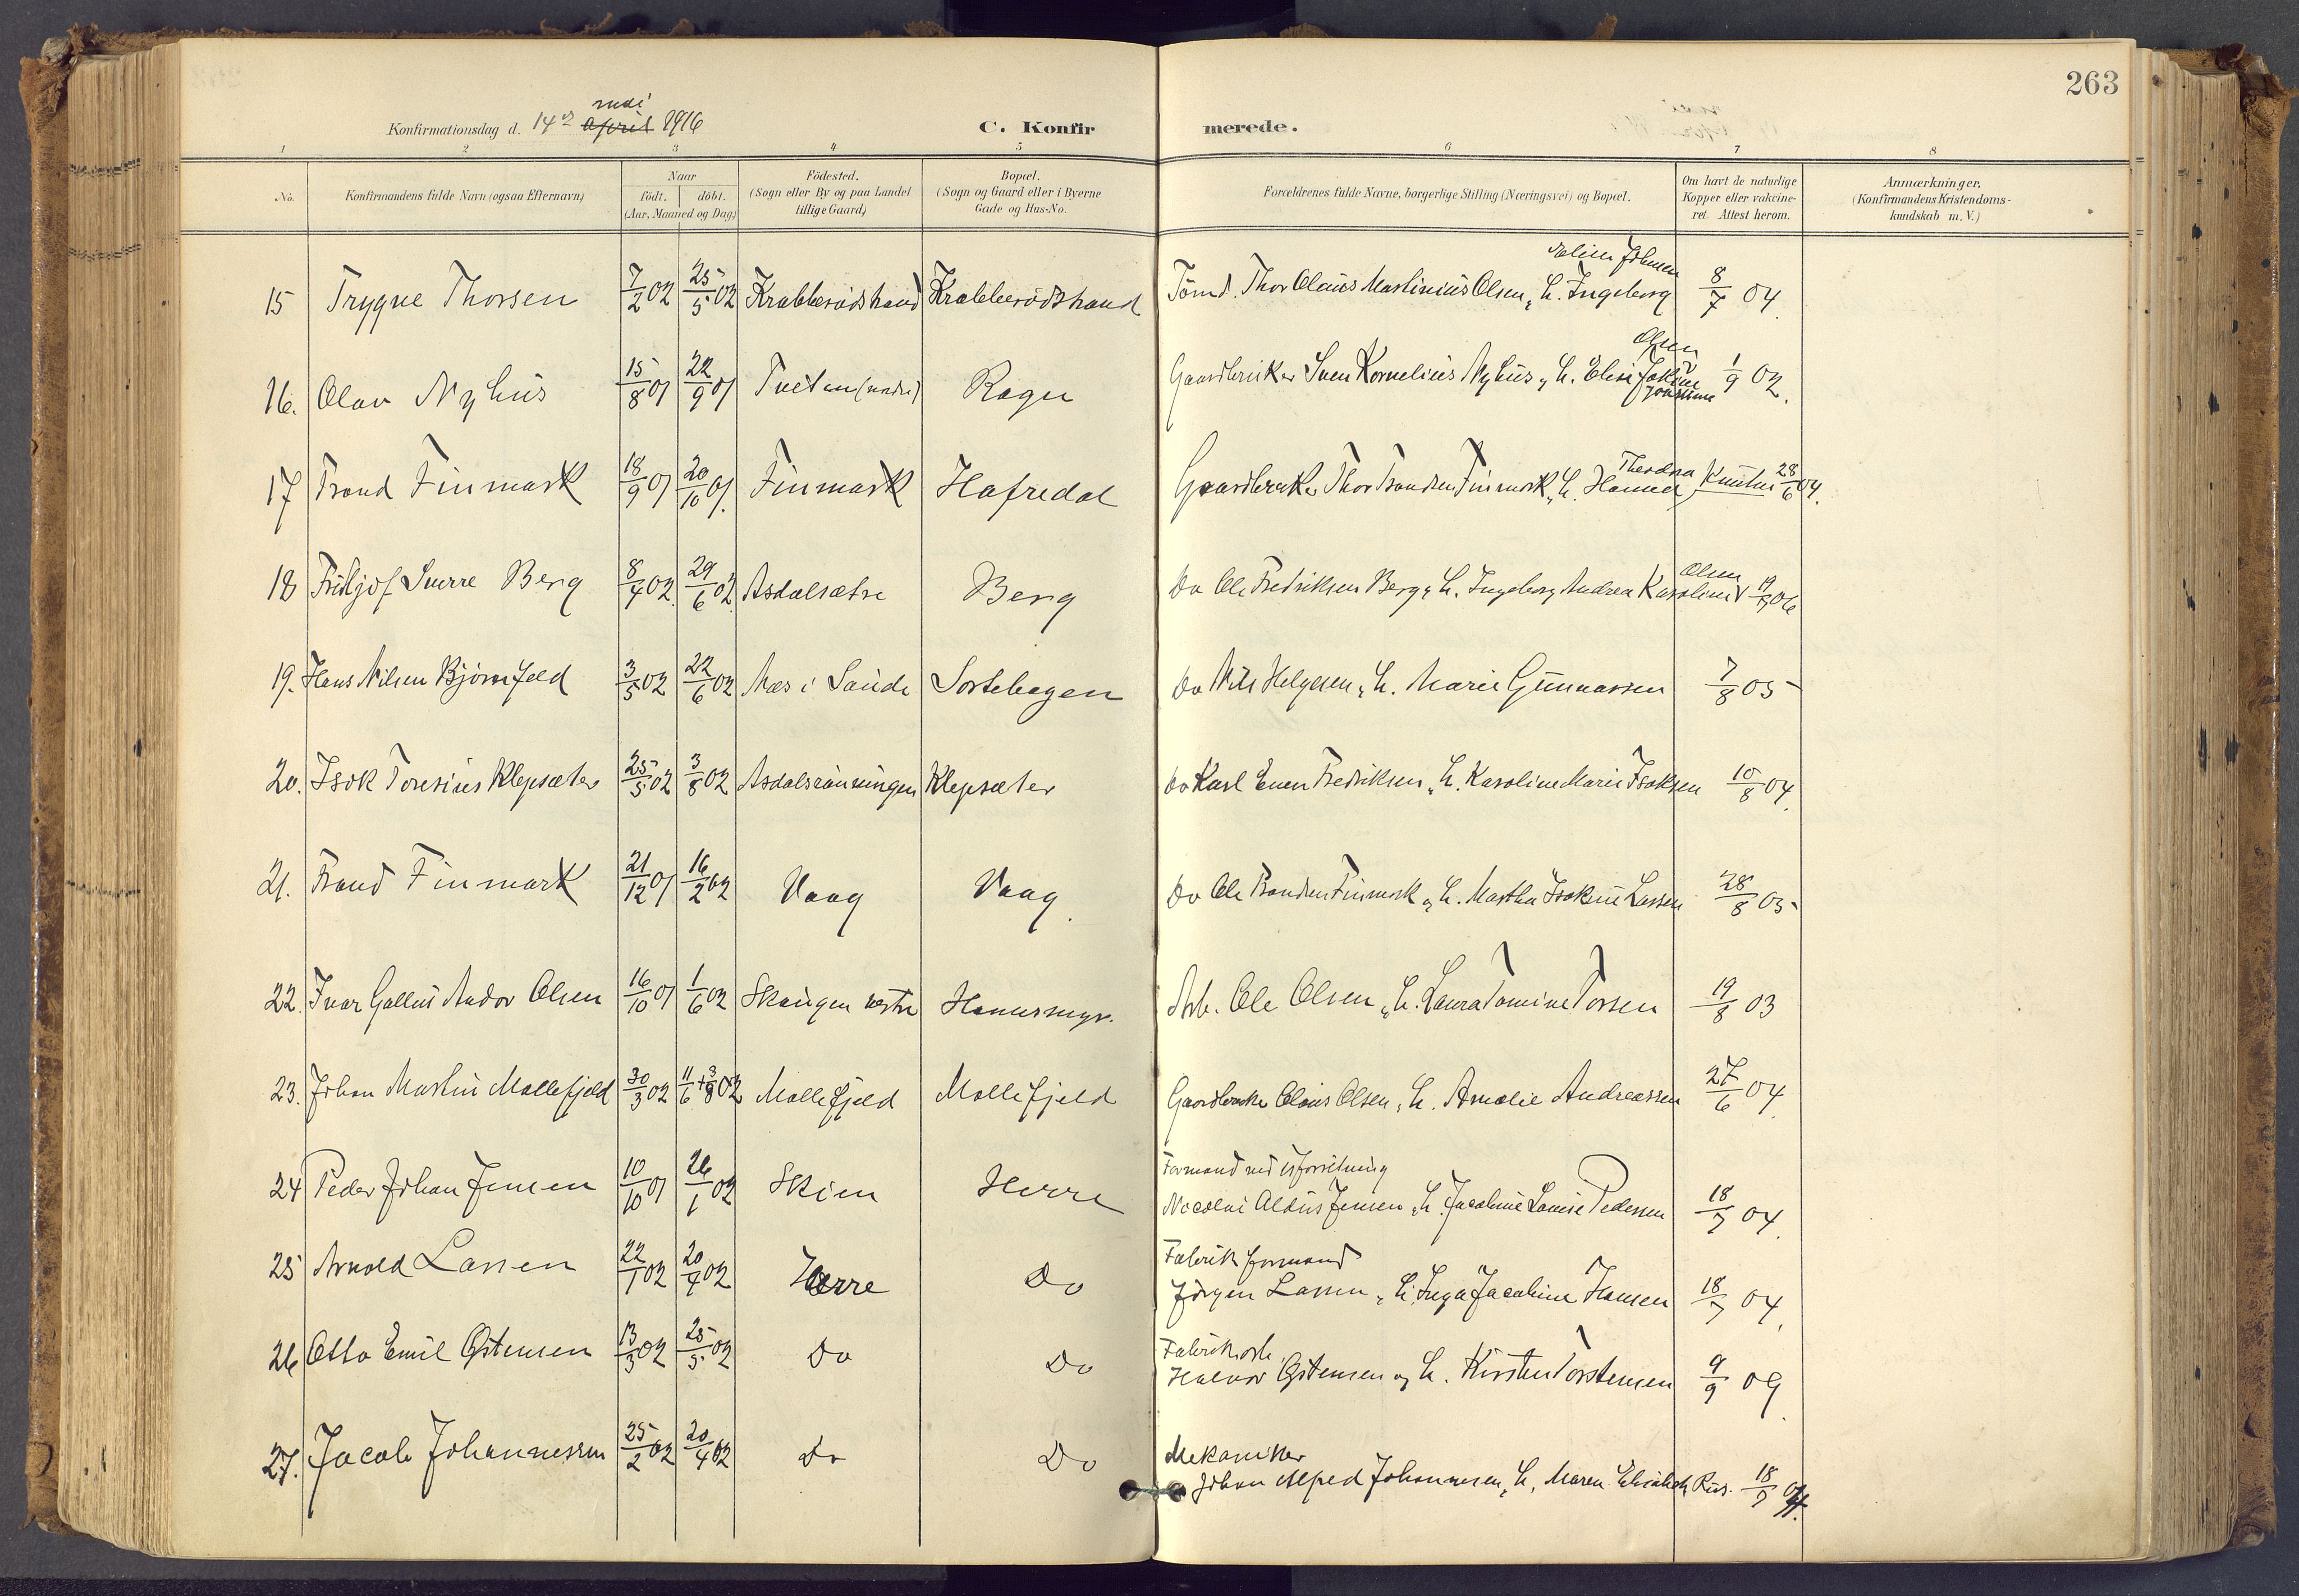 263
mai
Konfirmationsdag d. 14de April 1916 C. Konfirmerede.
1 2 3 4 5 6 7 8
No. Konfirmandens fulde Navn (ogsaa Efternavn) Naar født. døbt. (Aar, Maaned og Dag) Fødested. (Sogn eller By og paa Landet tillige Gaard) Bopæl. (Sogn og Gaard eller i Byerne Gade og Hus-No. Forældrenes fulde Navne, borgerlige Stilling (Næringsvei) og Bopæl. Om havt de naturlige Kopper eller vakcineret. Attest herom. Anmærkninger. (Konfirmandens Kristendomskundskab m. V.)
15 Trygve Thorsen 7/2 02 25/5 02 Krabberødstrand Krabberødstrand Tømd. Thor Olaus Martinius Olsen, h. Ingeborg Eline Johnsen 8/7 04.
16. Olav Nyhus 15/8 01 22/9 01 Tveten (nedre) Rogn Gaardbruker Sven Kornelius Nyhus, h. Elise Jokine Olsen 1/9 02.
17 Trond Finmark 18/9 01 20/10 01. Finmark Hafredal Gaardbruker Thor Trondsen Finmark, h. Hanna Theodora Knutsen 28/6 04.
18 Frithjof Sverre Berg 8/4 02. 29/6 02. Asdalsætre Berg Do Ole Fredriksen Berg, h. Ingeborg Andrea Karoline Olsen 06
19. Hans Nilsen Bjørnfjeld 3/5 02 22/6 02 Næs i Saude Sortebogen Do Nils Helgesen, h. Marie Gunnarsen 7/8 05
20. Isak Toresius Klepsæter 25/5 02 3/8 02 Asdalsrønningen Klepsæter Do Karl Even Fredriksen, h. Karoline Marie Isaksen 10/8 04.
21. Trond Finmark 21/12 01 16/2 02 Vaag Vaag. Do Ole Trondsen Finmark, h. Martha Isakine Larsen 28/8 05
22. Ivar Gallus Andor Olsen 16/10 01 1/6 02 Skaugen vestre Hansmyr. Arb. Ole Olsen, h. Laura Tomine Torsen 19/8 03
23. Johan Martin Mallefjeld 30/3 02 11/6 + 3/8 02 Mallefjeld Mallefjeld Gaardbruker Olaus Olsen, h. Amalie Andreassen 27/6 04.
24 Peder Johan Jensen 10/10 01 26/1 02 Skien Herre Formand ved isforretning
Nicolai Aldus Jensen, h. Jacobine Lovise Pedersen 18/7 04.
25 Arnold Larsen 22/1 02 20/4 02 Herre Do Fabrikformand
Jørgen Larsen, h. Inga Jacobine Hansen 18/7 04.
26 Otto Emil Østensen 13/3 02 25/5 02 Do Do Fabrikarb.
Halvor Østensen og h. Kirsten Torstensen 9/9 09.
27. Jacob Johannessen 25/2 02 20/4 02 Do Do Mekaniker
Johan Alfred Johannesen, h. Maren Elisabeth Riis. 18/7 04.